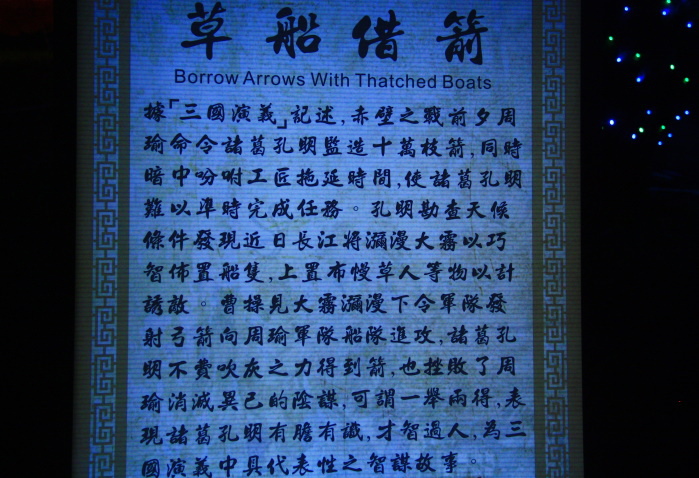 草船借箭
Borrow Arrows With Thatched Boats
據「三國演義」記述,赤壁之戰前夕周
瑜命令諸葛孔明監造十萬枝箭,同時
暗中吩咐工匠拖延時間,使諸葛孔明
難以準時完成任務。孔明勘查天候
條件發現近日長江將瀰漫大霧以巧
智佈置船隻,上置布幔草人等物以計
誘敵。曹操見大霧瀰漫下令軍隊發
射弓箭向周瑜軍隊船隊進攻,諸葛孔
明不費吹灰之力得到箭,也挫敗了周
瑜消滅異己的陰謀,可謂一舉兩得,表
現諸葛孔明有膽有識,才智過人,為三
國演義中具代表性之智謀故事。